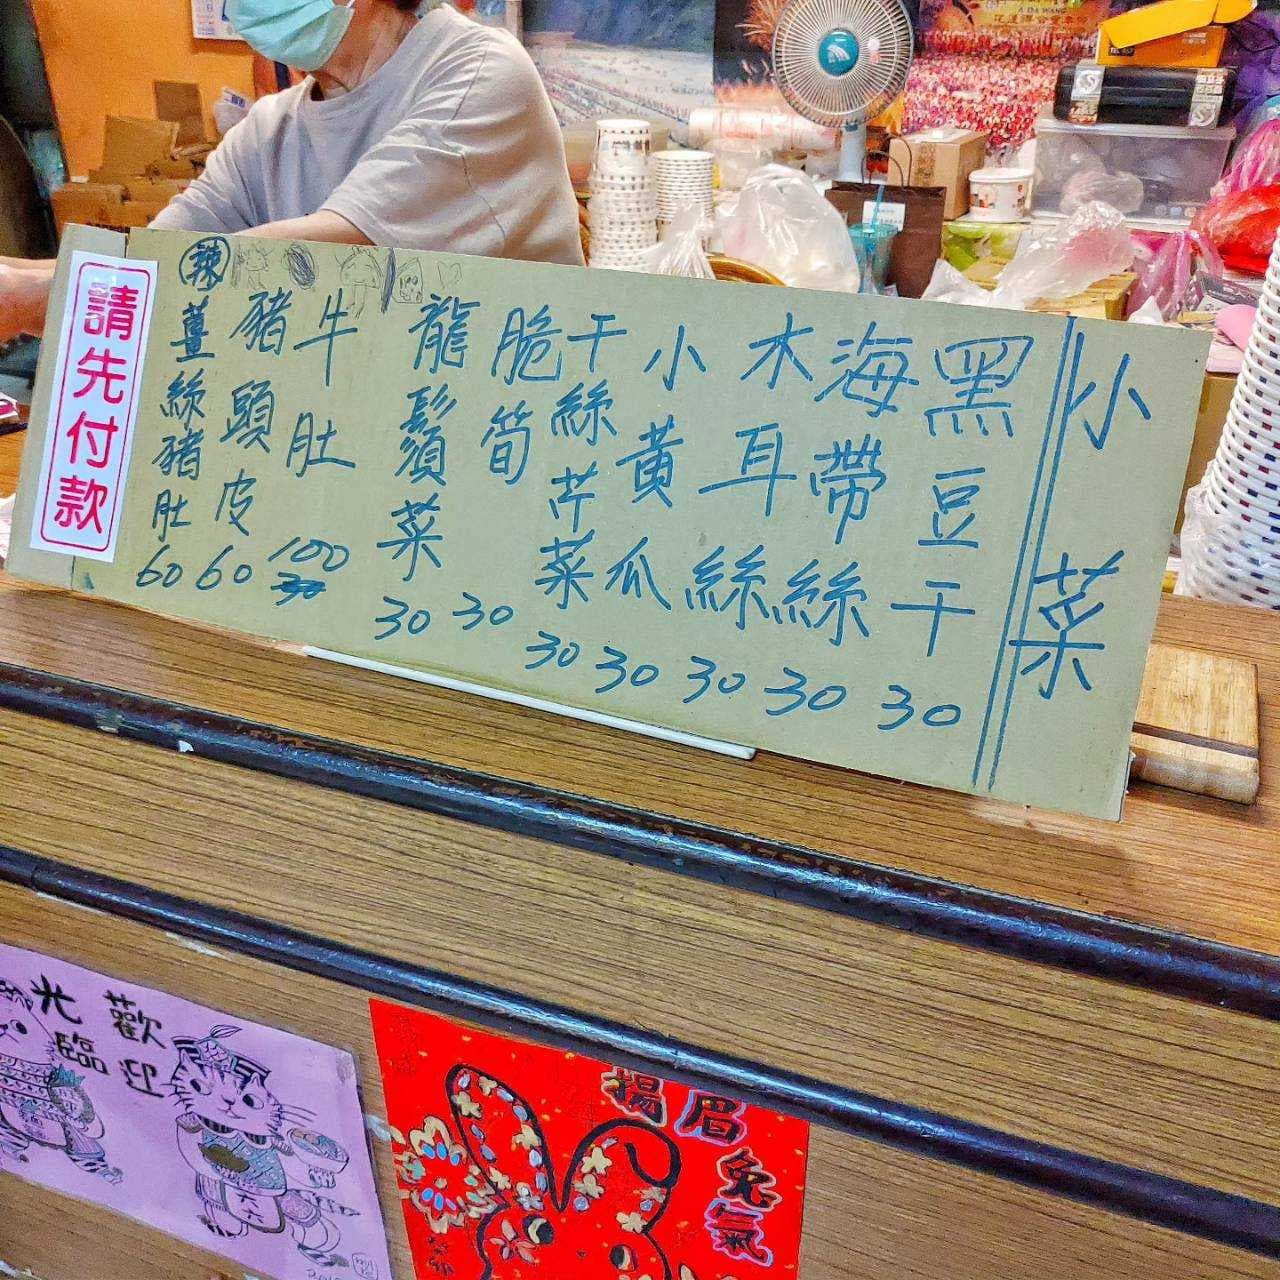 小菜
黑豆干 30
海帶絲 30
木耳絲 30
小黃瓜 30
干絲芹菜 30
脆筍 30
龍鬚菜 30
牛肚 100
豬頭皮 60
辣 薑絲豬肚 60
請先付款
歡迎
光臨
揚眉兔氣